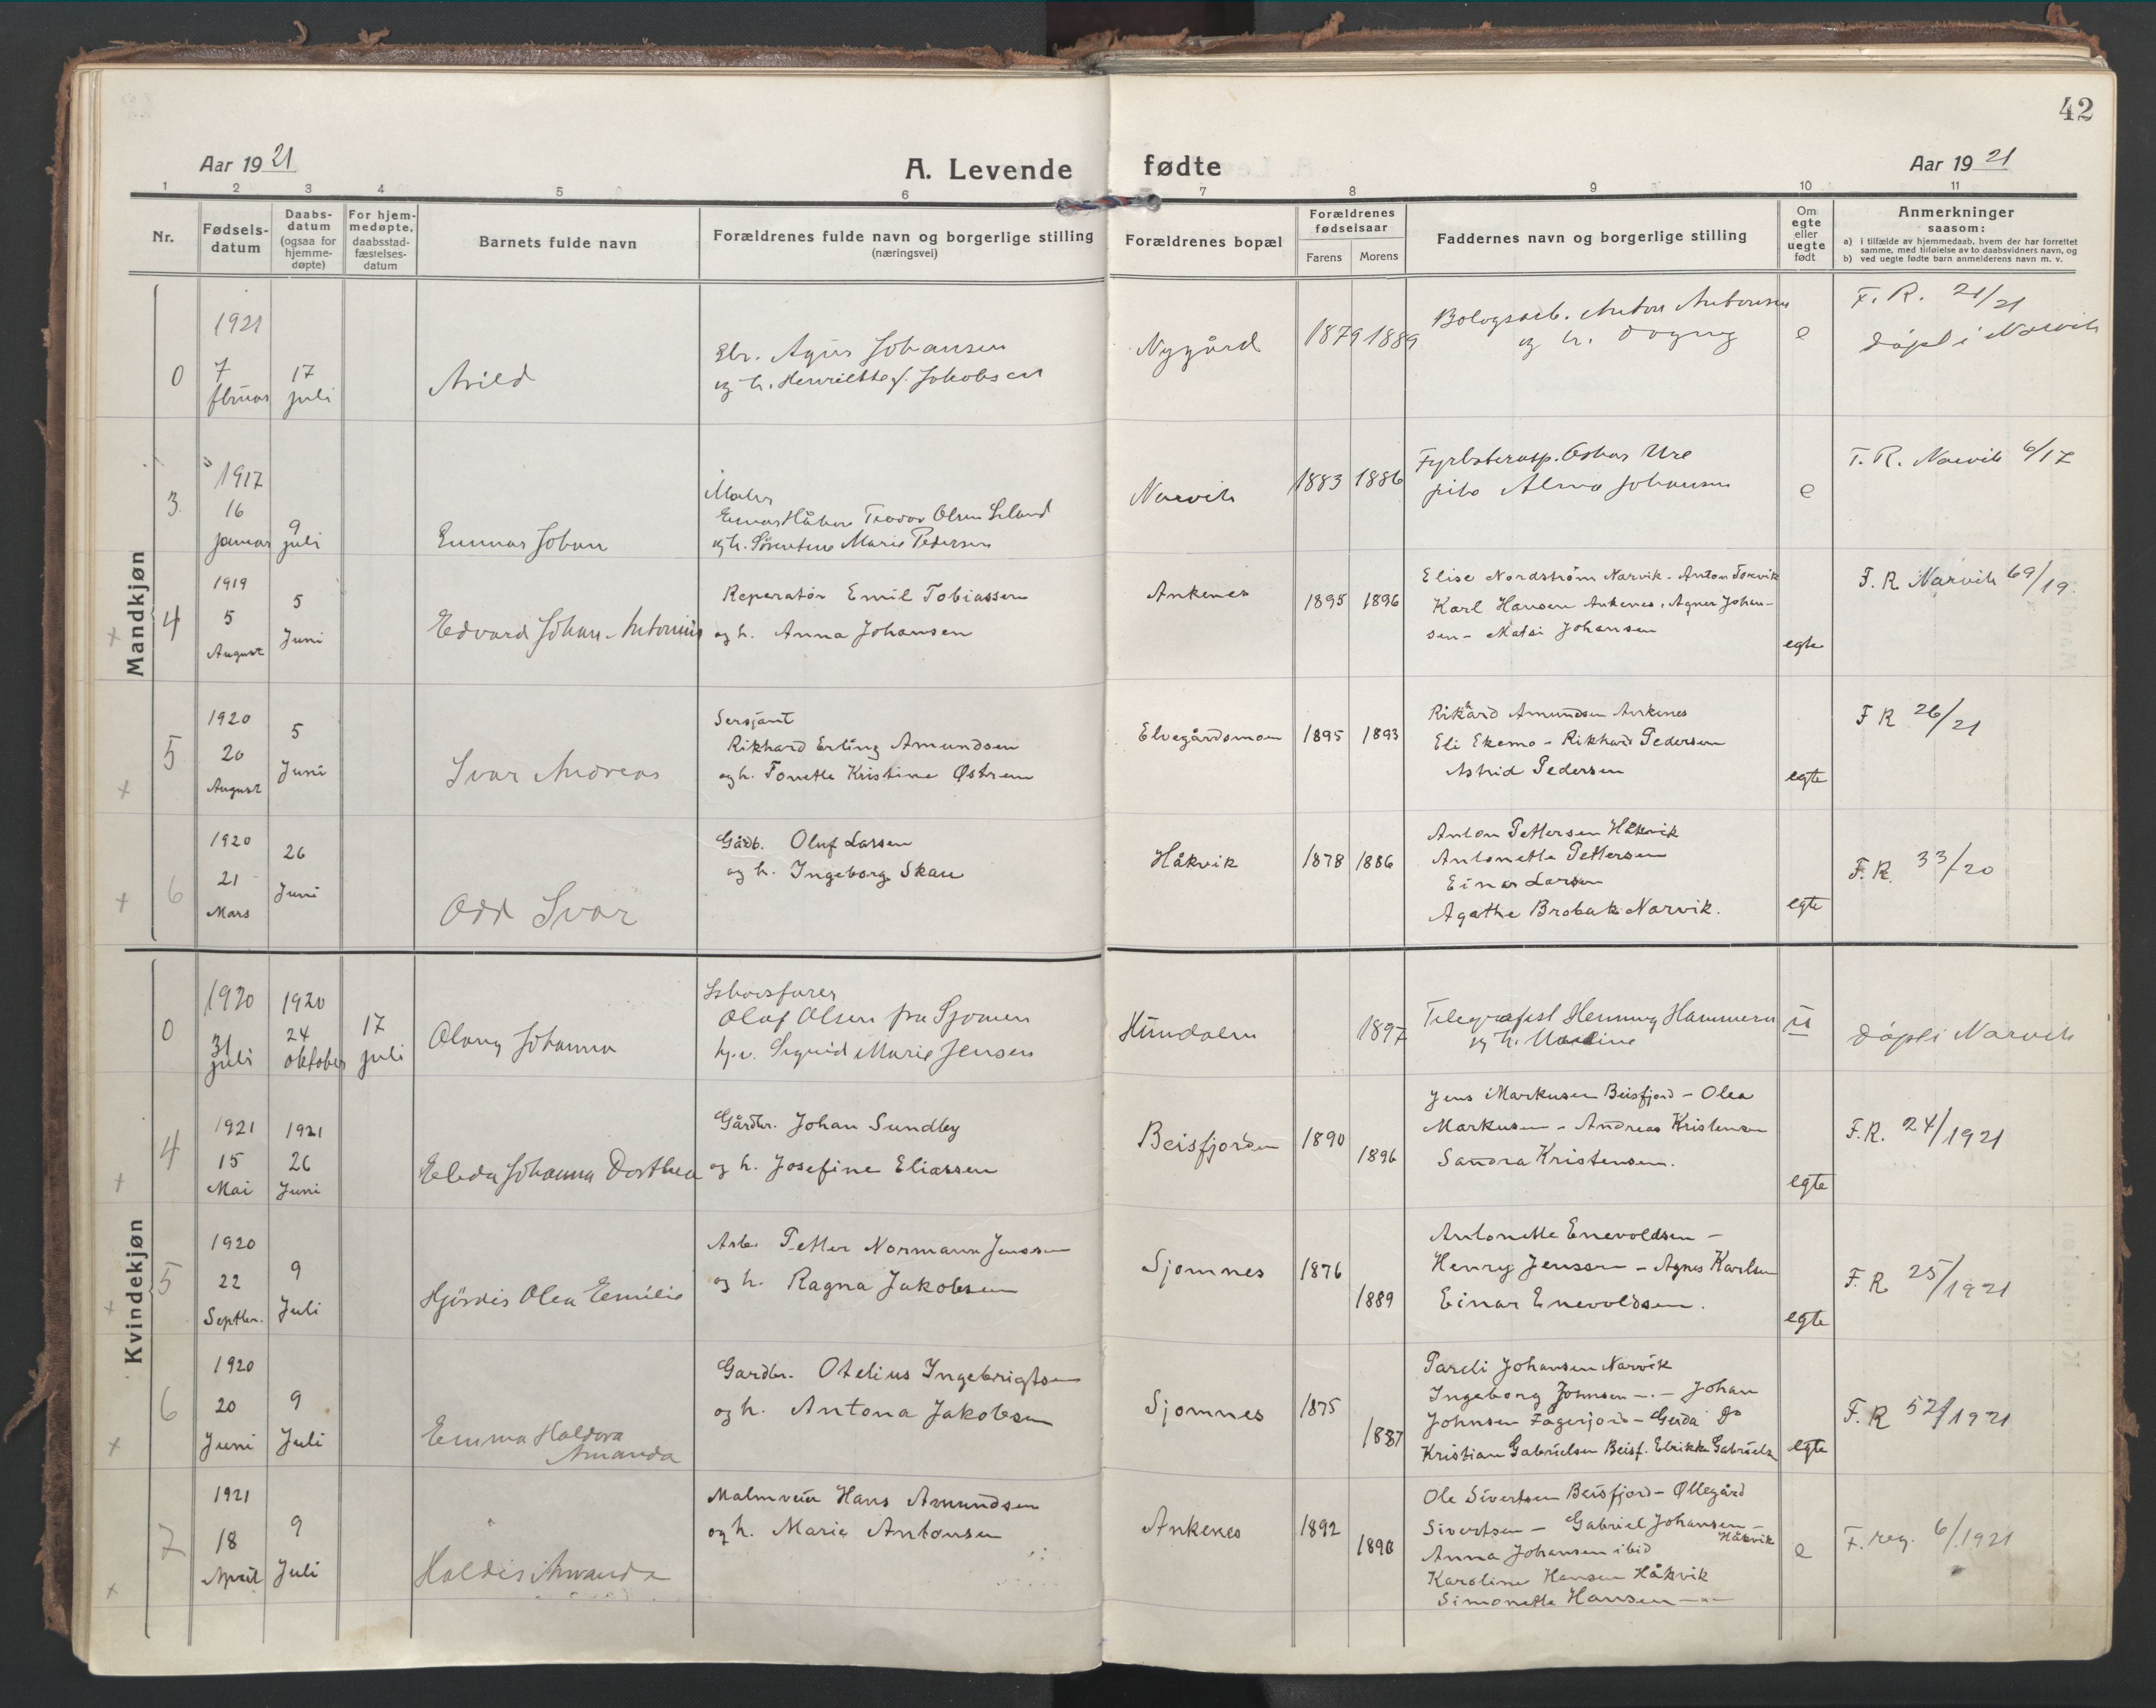 42
Aar 1921
A. Levende fødte
Aar 1921
1 2 3 4 5 6 7 8 9 10 11
Nr.
Fødsels-
datum
Daabs-
datum
(ogsaa for
hjemme-
døpte)
For hjem-
medøpte,
daabsstad-
fæstelses-
datum
Barnets fulde navn
Forældrenes fulde navn og borgerlige stilling
(næringsvei)
Forældrenes bopæl
Forældrenes
fødselsaar
Farens Morens
Faddernes navn og borgerlige stilling
Om
egte
eller
uegte
født
Anmerkninger
saasom:
a) i tilfælde av hjemmedaab, hvem der har forrettet
samme, med tilføielse av to daabsvidners navn, og
b) ved uegte fødte barn anmelderens navn m. v.
Mandkjøn
0
1921
7
februar
17
juli
Arild
Johansen
og h. Henriette f. Jakobsen
Nygård
1879 1889
Anton Antonsen
og h. Dagny
e
F. R. 21/21
døpt i Narvik
3
1917
16
januar
9
juli
Gunnar Johan
Maler
Teodor Olsen
og h. Sørentine Marie Pedersen
Narvik
1883 1886
Oskar Ure
Alma Johansen
e
F. R. Narvik 6/17
4
1919
5
August
5
Juni
Edvard Johan Antonius
Reparatør Emil Tobiassen
og h. Anna Johansen
Ankenes
1895 1896
Elise Nordstrøm Narvik - Anton Torvik
Karl Hansen Ankenes, Agner Johan-
sen - Matai Johansen
egte
F. R Narvik 69/19.
5
1920
20
August
5
Juni
Ivar Andreas
Sersjant
Rikhard Erling Amundsen
og h. Tonette Kristine Østrem
Elvegårdsmoen
1895 1893
Rikard Amundsen Ankenes
Eli Ekemo - Rikhard Pedersen
Astrid Pedersen
egte
F R 26/21
6
1920
21
Mars
26
Juni
Odd Ivar
Gårdb. Oluf Larsen
og h. Ingeborg Skau
Håkvik
1878 1886
Anton Pettersen Håkvik
Antonette Pettersen
Einar Larsen
Agathe Brobak Narvik.
egte
F. R. 33/20
Kvindekjøn
0
1920
31
juli
1920
24
oktober
17
juli
Olaug Johanna
Olaf Olsen fra Sjomen
Sigrid Marie Jensen
Hundalen
1897
Telegrafist Henning Hammern
og h.
u
døpt i Narvik
4
1921
15
Mai
1921
26
Juni
Elida Johanna Dorthea
Gårdbr. Johan Sundby
og h. Josefine Eliassen
Beisfjorden
1890
1896
Jens Markusen Beisfjord - Olea
Markusen - Andreas Kristensen
Sandra Kristensen.
egte
F. R. 24/1921
5
1920
22
Septbr.
9
Juli
Hjørdis Olea Emilie
Arb. Petter Normann Jensen
og h. Ragna Jakobsen
Sjomnes
1876
1889
Antonette Enevoldsen -
Henry Jensen - Agnes Karlsen
Einar Enevoldsen.
egte
F. R 25/1921
6
1920
20
Juni
9
Juli
Emma Haldora
Amanda
Gardbr. Otelius Ingebrigtsen
og h. Antona Jakobsen
Sjomnes
1875
1887
Pareli Johansen Narvik
Ingeborg Johnsen -.- Johan
Johnsen Fagerjord - Gerda Do
Kristian Gabrielsen Beisf. Elrikke Gabrielsen
egte
F. R 52/1921
7
1921
18
April
9
Juli
Haldis Amanda
Malmveier Hans Amundsen
og h. Marie Antonsen
Ankenes
1892
1890
Ole Sivertsen Beisfjord - Øllegård
Sivertsen - Gabriel Johansen -
Håkvik
Anna Johansen ibid
Karoline Hansen Håkvik
Simonette Hansen -"-
e
F. reg. 6/1921